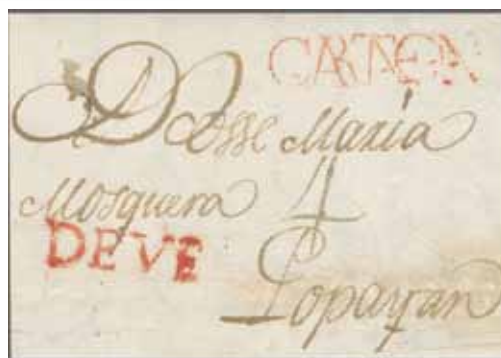 CARTAGA
D Josse Maria
Mosquera 4
DEVE
Popayan